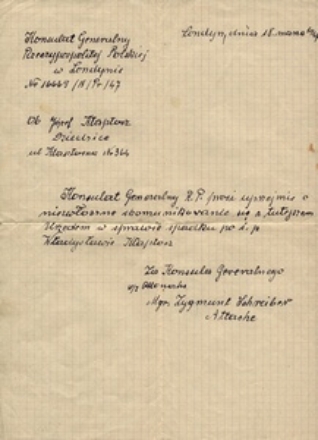 Konsulat Generalny
Rzeczypospolitej Polskiej
w Londynie
Nr 16449/
Londyn, dnia 18 marca
Ob. Józef Klaptocz
Dziedzice
ul Klasztorna nr 344
Konsulat Generalny R.P. prosi uprzejmie o
niezwłoczne skomunikowanie się z tutejszym
Urzędem w sprawie spadku po ś.p.
Władysławie Klaptocz
Za Konsula Generalnego
Mgr. Zygmunt Schreiber
Attache